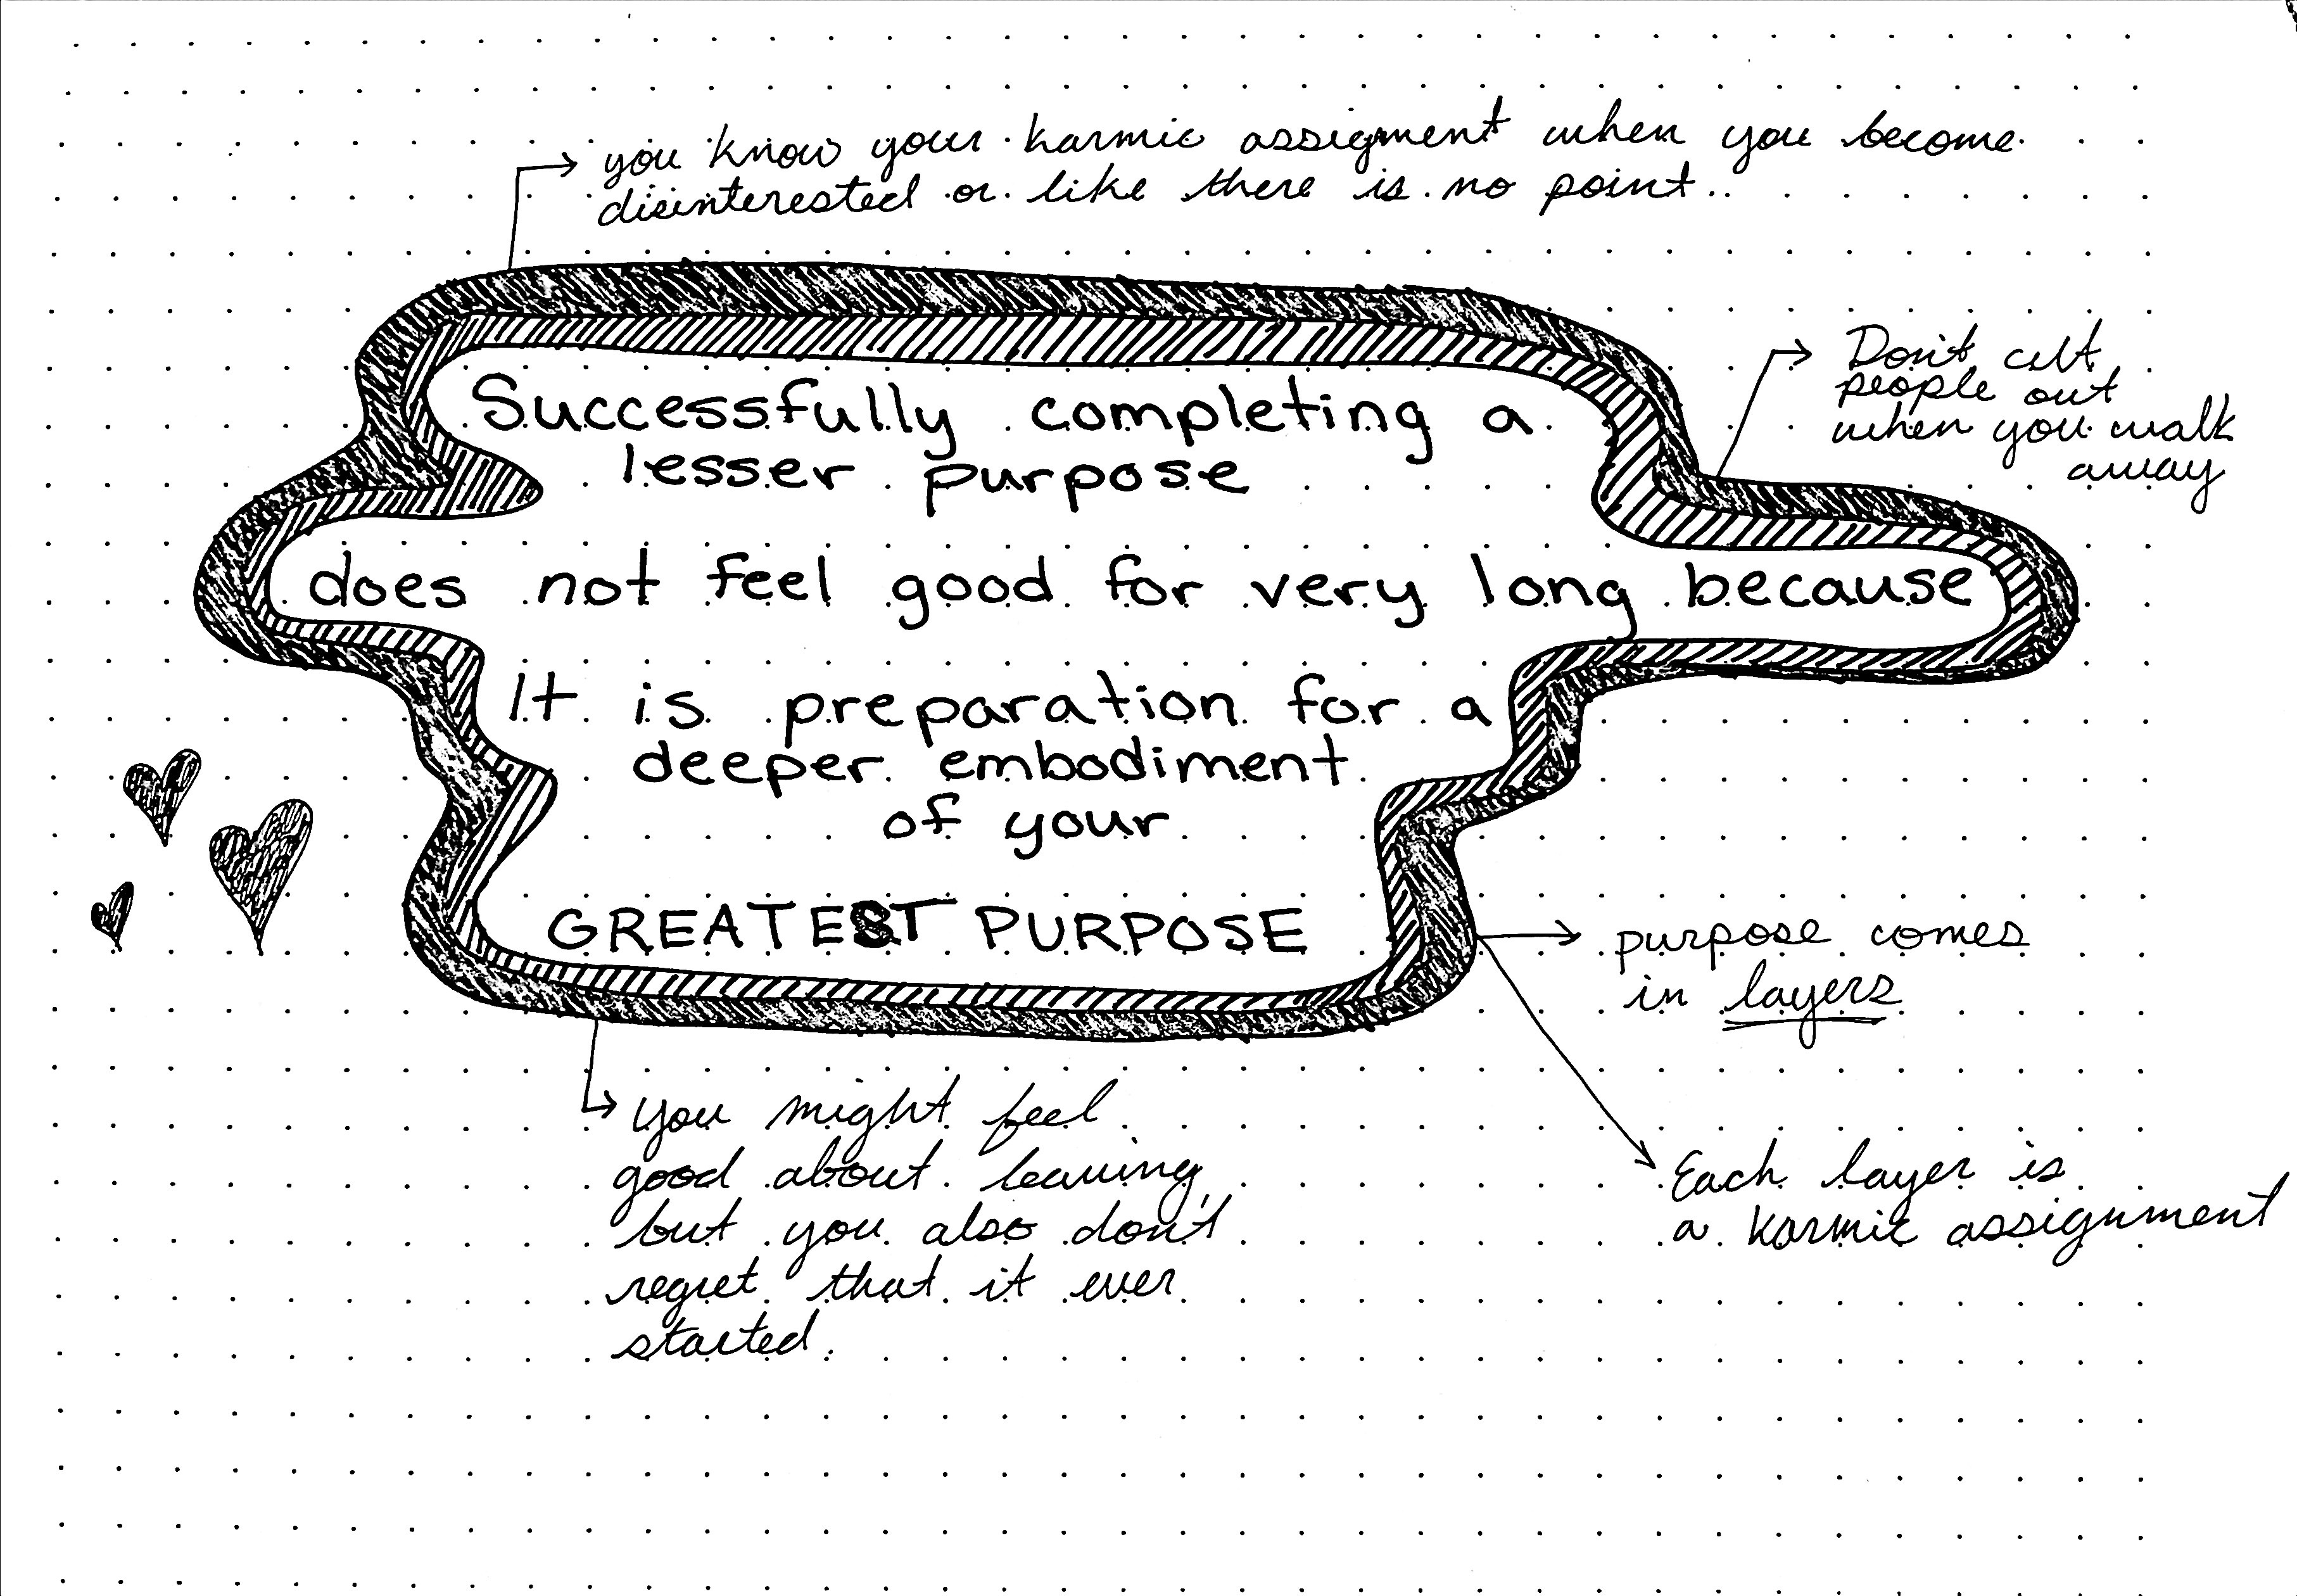 you know your karmic assigment when you become
disinterested or like there is no point.
Don't cut
people out
when you walk
away
Successfully completing a
lesser purpose
does not feel good for very long because
It is preparation for a
deeper embodiment
of your
GREATEST PURPOSE
purpose comes
in layers
Each layer is
a karmic assignment
you might feel
good about leaving,
but you also don't
regret that it ever
started.